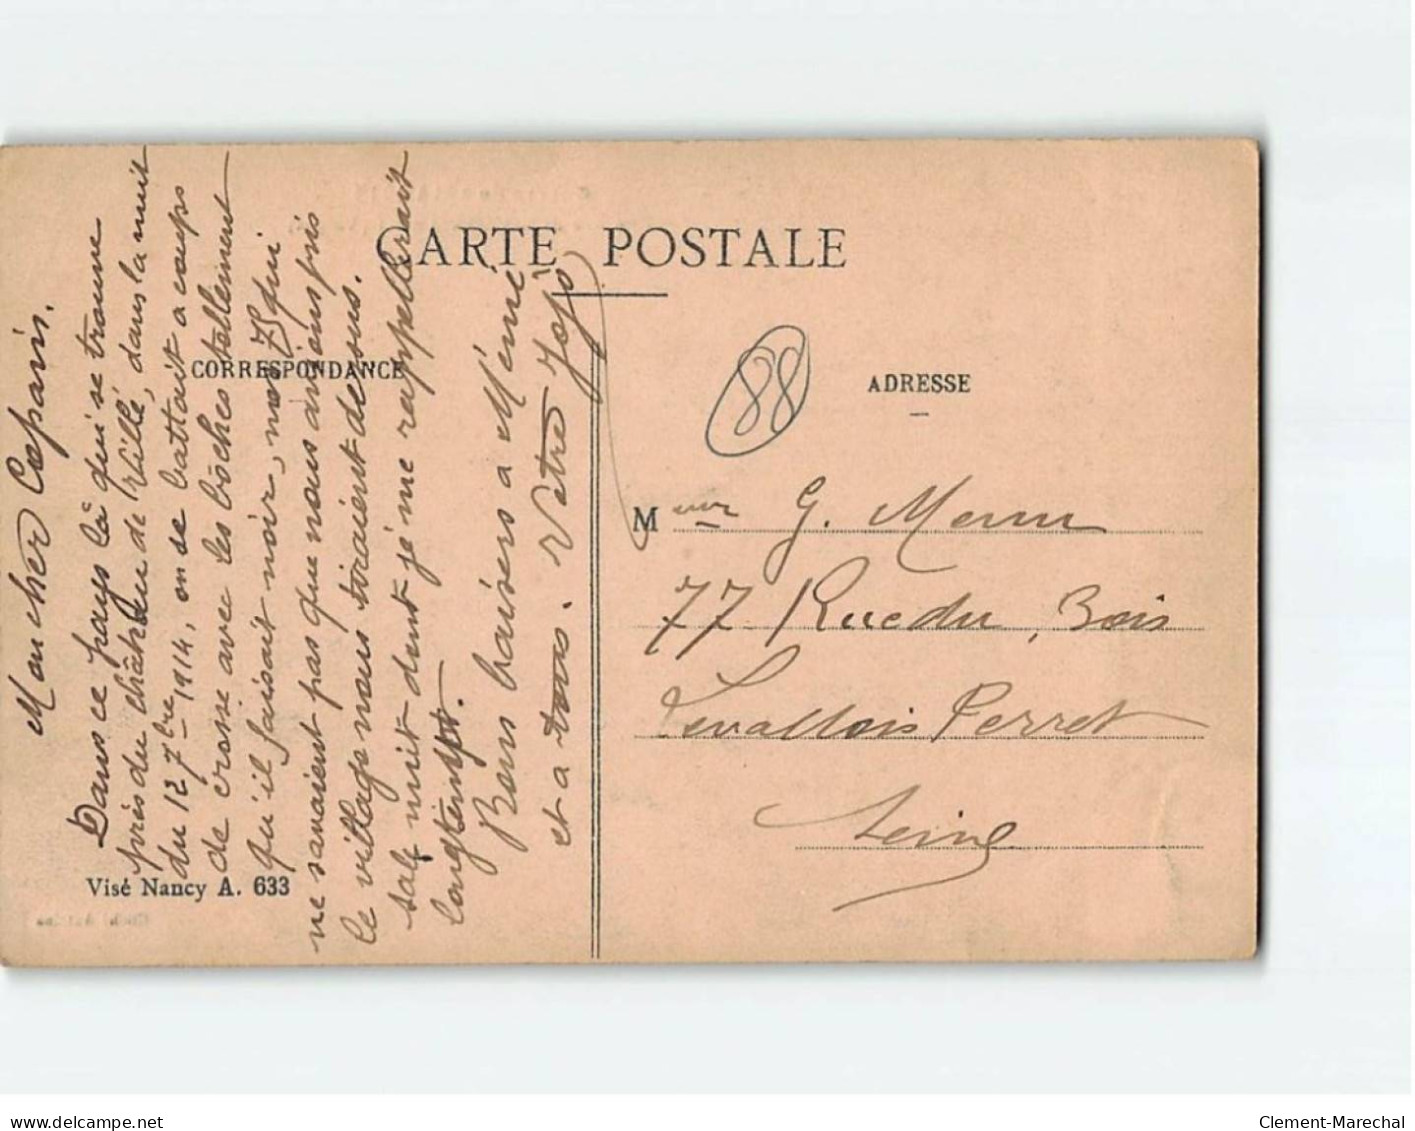 CARTE POSTALE
CORRESPONDANCE
ADRESSE
88
Mon cher Copain.
Dans ce pays là qui se trouve
près du château de Villé, dans la nuit
du 12 7bre 1914, on se battait a coups
de crosse avec les bôches tellement
qu'il faisait noir, nos 75 qui
ne savaient pas que nous avions pris
le village nous tiraient dessus.
sale nuit dont je me rappellerait
longtemps.
Bons baisers a Mémé
et a tous. Votre Jojo
Visé Nancy A. 633
Meur G. Menu
77 Rue du Bois
Levallois Perret
Seine
delcampe.net
Clement-Marechal